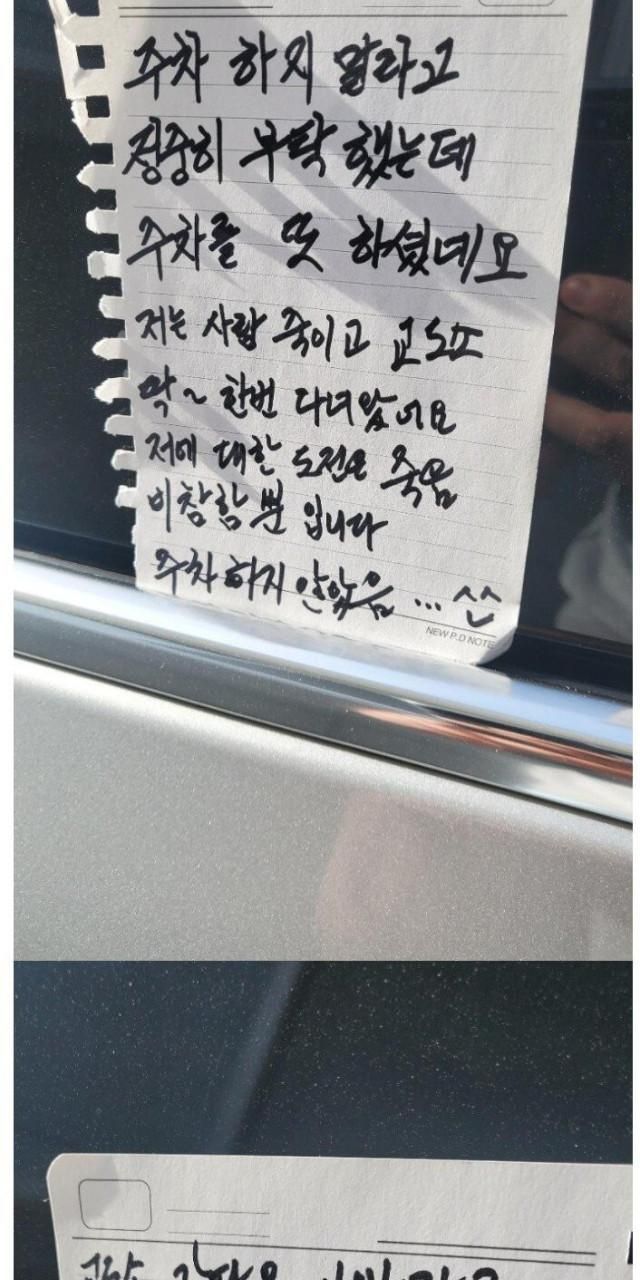 주차 하지 말라고
정중히 부탁 했는데
주차를 또 하셨네요
저는 사람 죽이고 교도소
막~ 한번 다녀왔어요
저에 대한 도전은 죽음
이참함 뿐 입니다
주차 하지 않았음... ^^
NEW P.D NOTE